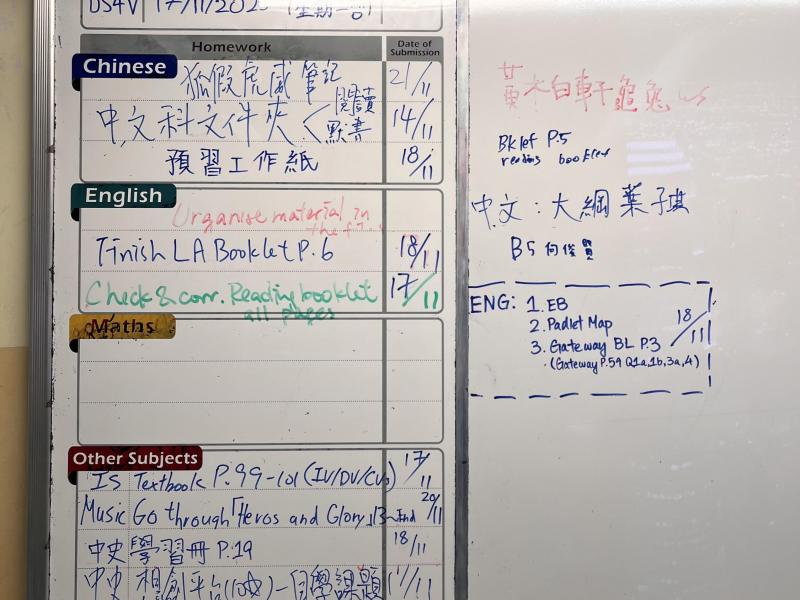 17/11/202
Homework
Date of Submission
Chinese
狐假虎威 筆記 21/11
中文科文件夾 < 閱讀 默書 14/11
預習工作紙 18/11
English
Organise material in
the f
Finish LA Booklet P.6 18/11
Check & corr. Reading booklet 17/11
all pages
Maths
Other Subjects
IS Textbook P.99-101 (IV/DV/CVs) 17/11
Music Go through「Heros and Glory」13~End 20/11
中史 學習冊 P.19 18/11
中史 自學課題 17/11
龜兔 ws
Bklet P.5
reading booklet
中文:大綱 葉子琪
B5 何俊賢
ENG: 1. EB
2. Padlet Map
3. Gateway BL P.3
(Gateway P.59 Q1a,1b,3a,4)
18/11